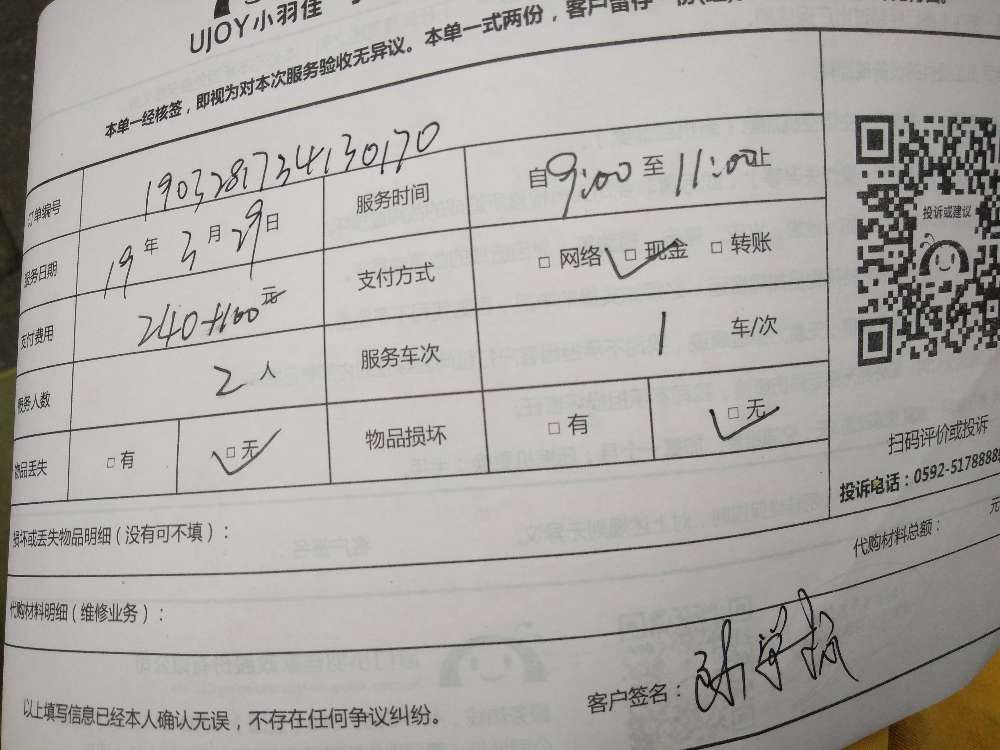 UJOY小羽佳
本单一经核签，即视为对本次服务验收无异议。本单一式两份，客户留存一份
订单编号 1903281734130170 服务时间 自9:00至11:00止
服务日期 19年3月29日 支付方式 □ 网络 □ 现金 □ 转账
支付费用 240+100元
服务人数 2人 服务车次 1 车/次
物品丢失 □ 有 □ 无 物品损坏 □ 有 □ 无
投诉或建议
扫码评价或投诉
投诉电话：0592-5178888
损坏或丢失物品明细（没有可不填）：
代购材料明细（维修业务）： 代购材料总额： 元
以上填写信息已经本人确认无误，不存在任何争议纠纷。 客户签名：